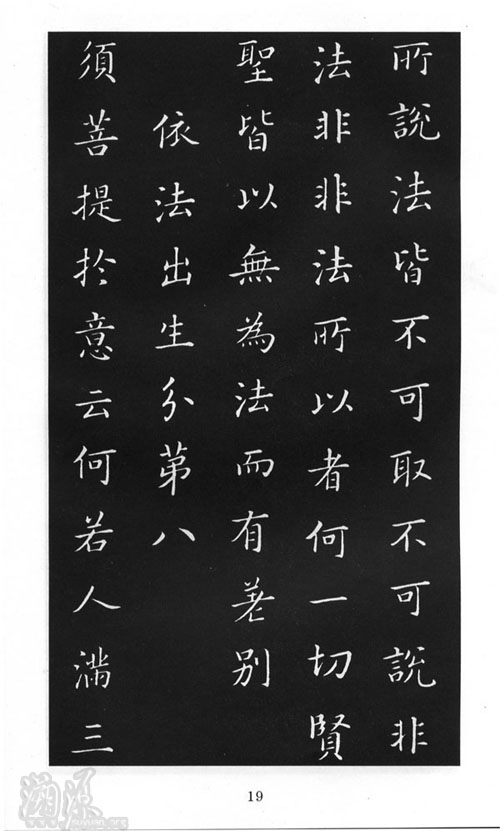 所說法皆不可取不可說非
法非非法所以者何一切賢
聖皆以無為法而有差別
依法出生分第八
須菩提於意云何若人滿三
19
溯源